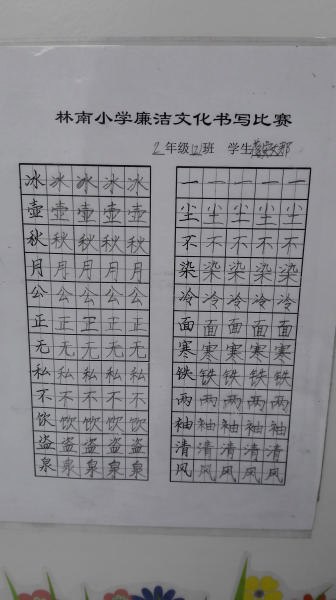 林南小学廉洁文化书写比赛
2年级班 学生
冰冰冰冰冰
壶壶壶壶壶
秋秋秋秋秋
月月月月月
公公公公公
正正正正正
无无无无无
私私私私私
不不不不不
饮饮饮饮饮
盗盗盗盗盗
泉泉泉泉泉
一一一一一
尘尘尘尘尘
不不不不不
染染染染染
冷冷冷冷冷
面面面面面
寒寒寒寒寒
铁铁铁铁铁
两两两两两
袖袖袖袖袖
清清清清清
风风风风风